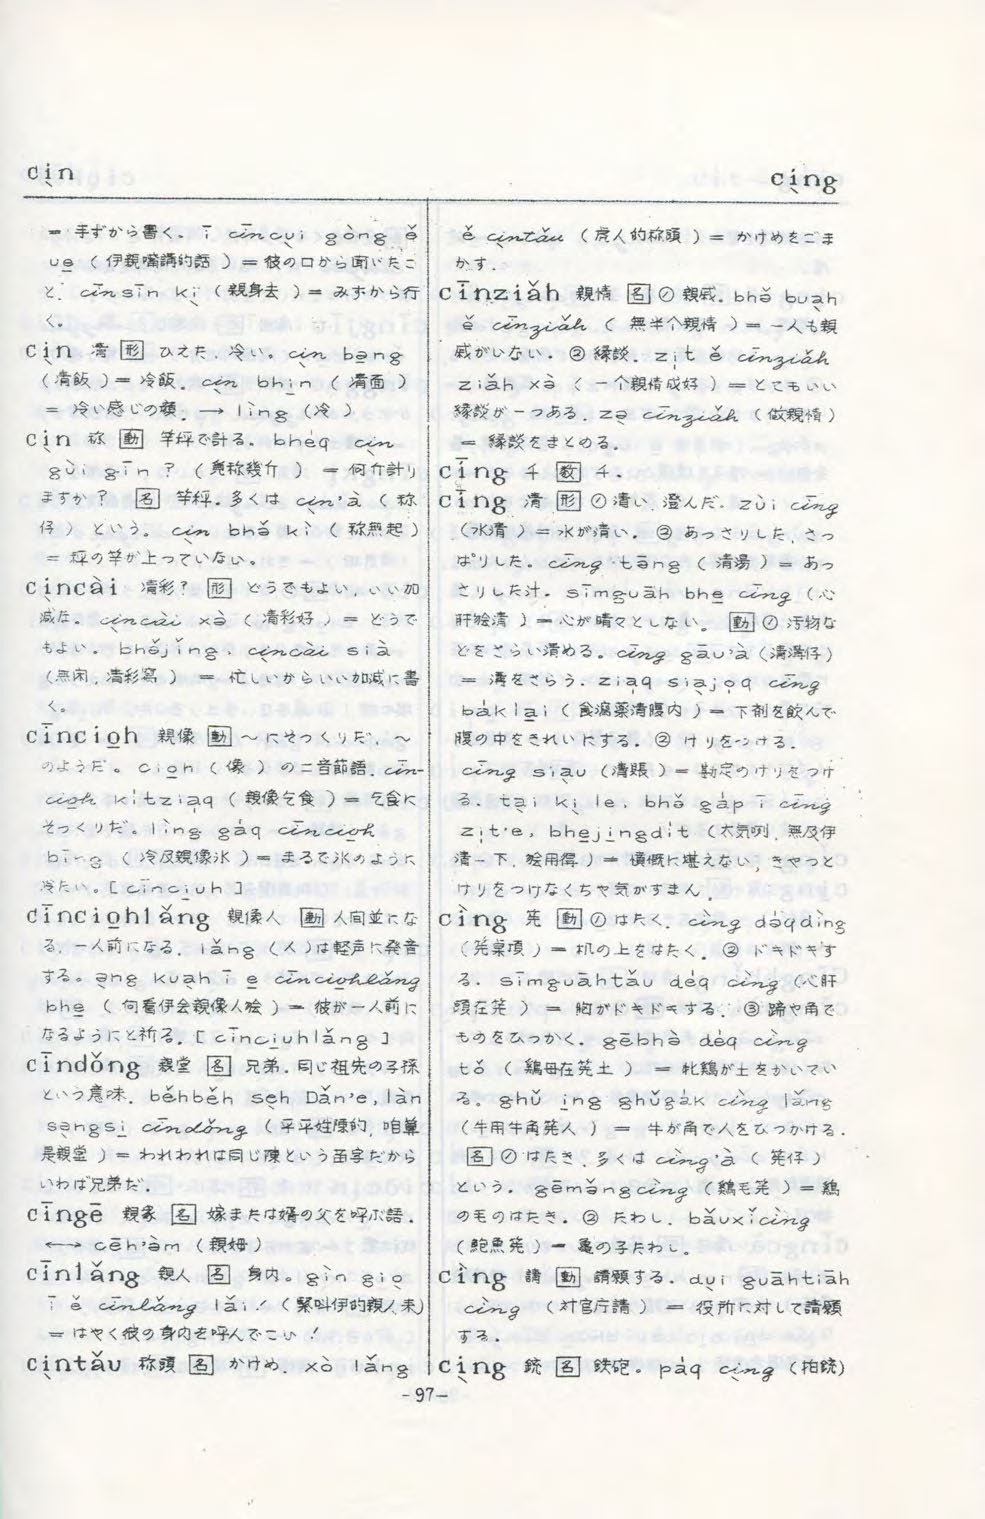 cịn
cịng
= 手ずから書く。ī cīncụi gòng ě
ue̱ (伊親嘴講的話) = 彼の口から聞いたこ
と. cīnsīn kị̀ (親身去) = みずから行
く。
cịn 凊 形 ひえた, 冷い。cịn bə̄ng
(凊飯) = 冷飯. cịn bhi̱n (凊面)
= 冷い感じの顔. → lìng (冷)
cịn 称 動 竿秤で計る. bhéq cịn
gùi gīn ? (覓称幾斤) = 何斤計り
ますか? 名 竿秤. 多くは cịn'à (称
仔) という。cịn bhə̌ kì (称無起)
= 秤の竿が上っていない。
cịncài 凊彩? 形 どうでもよい, いい加
減な. cịncài xə̀ (凊彩好) = どうで
もよい. bhə̌jǐng, cịncài sià
(無閑, 凊彩寫) = 忙しいからいい加減に書
く。
cīncio̱h 親像 動 ~にそっくりだ, ~
のようだ。cio̱h (像) の二音節語. cīn-
cio̱h kitziaq (親像乞食) = 乞食に
そっくりだ。lìng gáq cīncio̱h
bīng (冷及親像氷) = まるで氷のように
冷たい。[cīnciu̱h]
cīncio̱hlǎng 親像人 動 人間並にな
る, 一人前になる. lǎng (人)は軽声に発音
する。ạng kuạh ī e̱ cīncio̱hlǎng
bhe̱ (向看伊会親像人𣍐) = 彼が一人前に
なるようにと祈る. [cīnciu̱hlǎng]
cīndǒng 親堂 名 兄弟. 同じ祖先の子孫
という意味. běhběh sẹh Dǎn'e, làn
sạngsi̱ cīndǒng (平平姓陳的, 咱雙
是親堂) = われわれは同じ陳という苗字だから
いわば兄弟だ.
cīngē 親家 名 嫁または婿の父を呼ぶ語.
←→ cēh'àm (親姆)
cīnlǎng 親人 名 身内。gìn giọ
ī ě cīnlǎng lǎi! (緊叫伊的親人来)
= はやく彼の身内を呼んでこい!
cịntǎu 称頭 名 かけめ. xò lǎng
ě cịntǎu (唬人的称頭) = かけめをごま
かす.
cīnziǎh 親情 名 ①親戚. bhə̌ buạh
ě cīnziǎh (無半个親情) = 一人も親
戚がいない. ②縁談. zi̍t ě cīnziǎh
ziǎh xə̀ (一个親情成好) = とてもいい
縁談が一つある. zə̣ cīnziǎh (做親情)
= 縁談をまとめる.
cīng 千 数 千.
cīng 清 形 ①清い, 澄んだ. zùi cīng
(水清) = 水が清い. ②あっさりした, さっ
ぱりした. cīng'tə̄ng (清湯) = あっ
さりした汁. sīmguāh bhe̱ cīng (心
肝𣍐清) = 心が晴々としない。動 ①汚物な
どをさらい清める。cīng gāu'à (清溝仔)
= 溝をさらう. ziạq siạjọq cīng
bȧkla̱i (食瀉薬清腹内) = 下剤を飲んで
腹の中をきれいにする. ②けりをつける.
cīng siạu (清賬) = 勘定のけりをつけ
る. tại kị le, bhə̌ gȧp ī cīng
zi̍t'e, bhe̱ji̱ngdi̍t (太気咧, 無及伊
清一下, 𣍐用得) = 憤慨に堪えない, きゃつと
けりをつけなくちゃ気がすまん.
cìng 筅 動 ①はたく. cìng dȯqdìng
(筅桌頂) = 机の上をはたく. ②ドキドキす
る. sīmguāhtǎu dėq cìng (心肝
頭在筅) = 胸がドキドキする. ③蹄や角で
ものをひっかく. gēbhə̀ dėq cìng
tǒ (鶏母在筅土) = 牝鶏が土をかいてい
る。ghǔ i̱ng ghǔgȧk cìng lǎng
(牛用牛角筅人) = 牛が角で人をひっかける.
名 ①はたき. 多くは cìng'à (筅仔)
という. gēmə̌ngcìng (鶏毛筅) = 鶏
の毛のはたき. ②たわし. bāuxǐcìng
(鮑魚筅) = 亀の子たわし.
cìng 請 動 請願する. dụi guāhtiāh
cìng (対官庁請) = 役所に対して請願
する.
cịng 銃 名 鉄砲。páq cịng (拍銃)
-97-